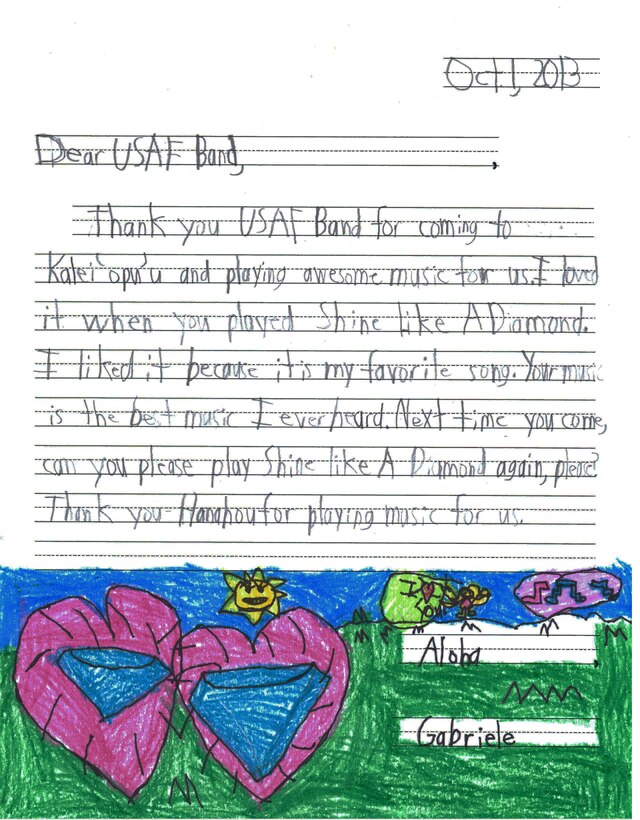 Oct.1, 2013
Dear USAF Band,
Thank you USAF Band for coming to
Kalei'opu'u and playing awesome music for us. I loved
it when you played Shine like A Diamond.
I liked it because it is my favorite song. Your music
is the best music I ever heard. Next time you come,
can you please play Shine like A Diamond again, please?
Thank you Hanahou for playing music for us.
I
you
Aloha
,
Gabriele